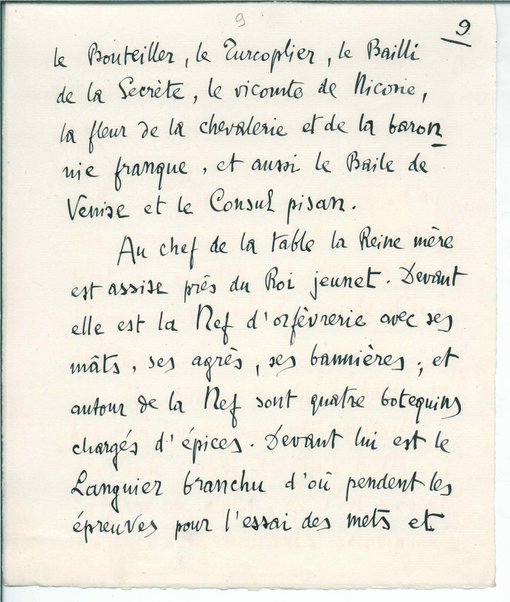 9
9
le Bouteiller, le Turcoplier, le Bailli
de la Secrète, le vicomte de Nicosie,
la fleur de la chevalerie et de la baron
nie franque, et aussi le Baile de
Venise et le Consul pisan.
Au chef de la table la Reine mère
est assise près du Roi jeunet. Devant
elle est la Nef d'orfèvrerie avec ses
mâts, ses agrès, ses bannières; et
autour de la Nef sont quatre botequins
chargés d'épices. Devant lui est le
Languier branchu d'où pendent les
épreuves pour l'essai des mets et